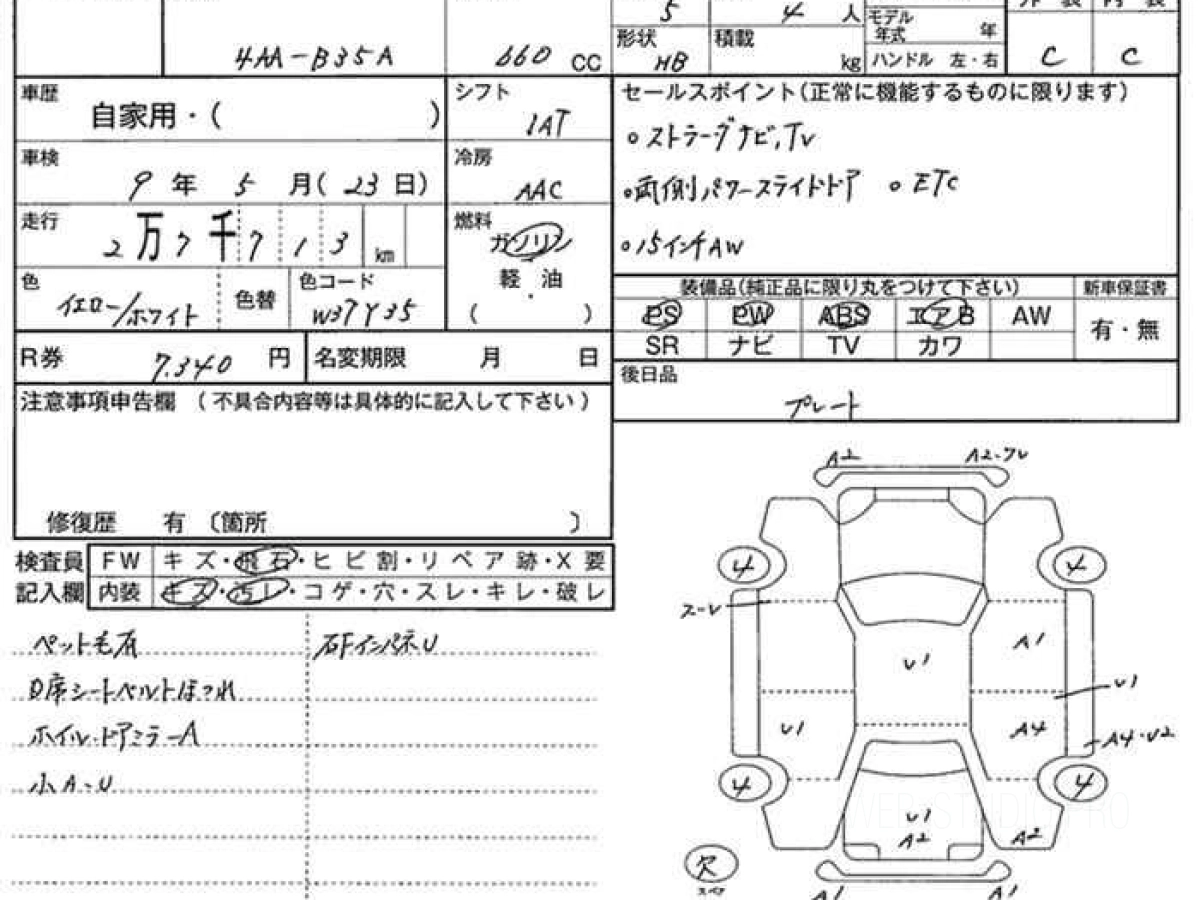 5 4 人
モデル
年式 年
4AA-B35A 660 CC
形状 HB 積載 kg ハンドル 左・右 C C
車歴 自家用・( ) シフト IAT
セールスポイント(正常に機能するものに限ります)
○ストラーダナビ,TV
○両側パワースライドドア ○ETC
○15インチAW
車検 9年 5月(23日) 冷房 AAC
走行 2万7千713km 燃料 ガソリン
軽・油
( )
色 イエロー/ホワイト 色替 色コード W37Y35
装備品(純正品に限り丸をつけて下さい) 新車保証書
PS PW ABS エアB AW 有・無
SR ナビ TV カワ
R券 7,340円 名変期限 月 日
後日品
プレート
注意事項申告欄 (不具合内容等は具体的に記入して下さい)
修復歴 有 〔箇所 〕
検査員 FW キズ・飛石・ヒビ割・リペア跡・X要
記入欄 内装 キズ・汚レ・コゲ・穴・スレ・キレ・破レ
ペット毛有 石FインパネU
D席シートベルトほつれ
ホイル・ドアミラーA
小A・U
A2 A2・ワレ
4 4
スーレ
A1
U1
U1
U1 A4
A4・U2
4 4
U1
A2 A2
欠
スペア
A1 A1